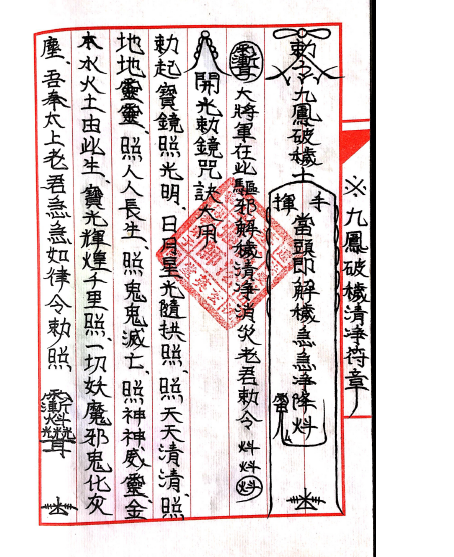 ※九鳳破穢清淨符章
敕令九鳳破穢上
手揮
當頭即解穢急急淨降炓
大將軍在此驅邪解穢清淨消災老君勅令炓炓炓
開光勅鏡咒訣大用
勅起寶鏡照光明、日月星光隨拱照、照天天清清、照
地地靈靈、照人人長生、照鬼鬼滅亡、照神神威靈金
木水火土由此生、寶光輝煌千里照、一切妖魔邪鬼化灰
塵、吾奉太上老君急急如律令勅照